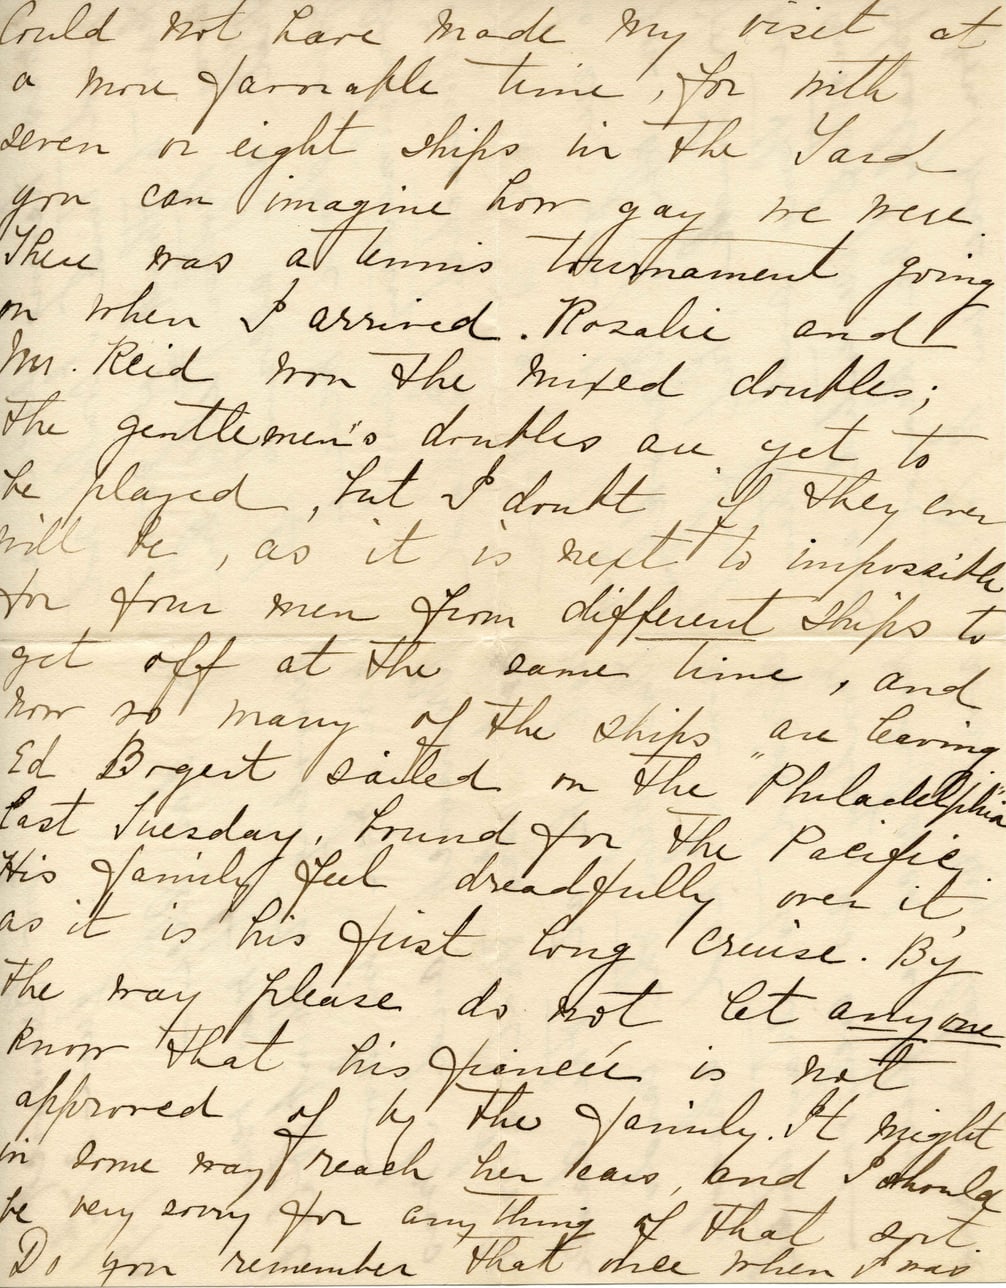 Could not have made my visit at
a more favorable time, for with
seven or eight ships in the Yard
you can imagine how gay we were.
There was a tennis tournament going
on when I arrived. Rosalie and
Mr. Reid won the mixed doubles;
the gentlemen's doubles are yet to
be played, but I doubt if they ever
will be, as it is next to impossible
for four men from different ships to
get off at the same time, and
now so many of the ships are leaving
Ed Bogert sailed on the "Philadelphia"
last Tuesday, bound for the Pacific.
His family feel dreadfully over it,
as it is his first long cruise. By
the way please do not let anyone
know that his fiancée is not
approved of by the family. It might
in some way reach her ears, and I should
be very sorry for anything of that sort.
Do you remember that once when I was